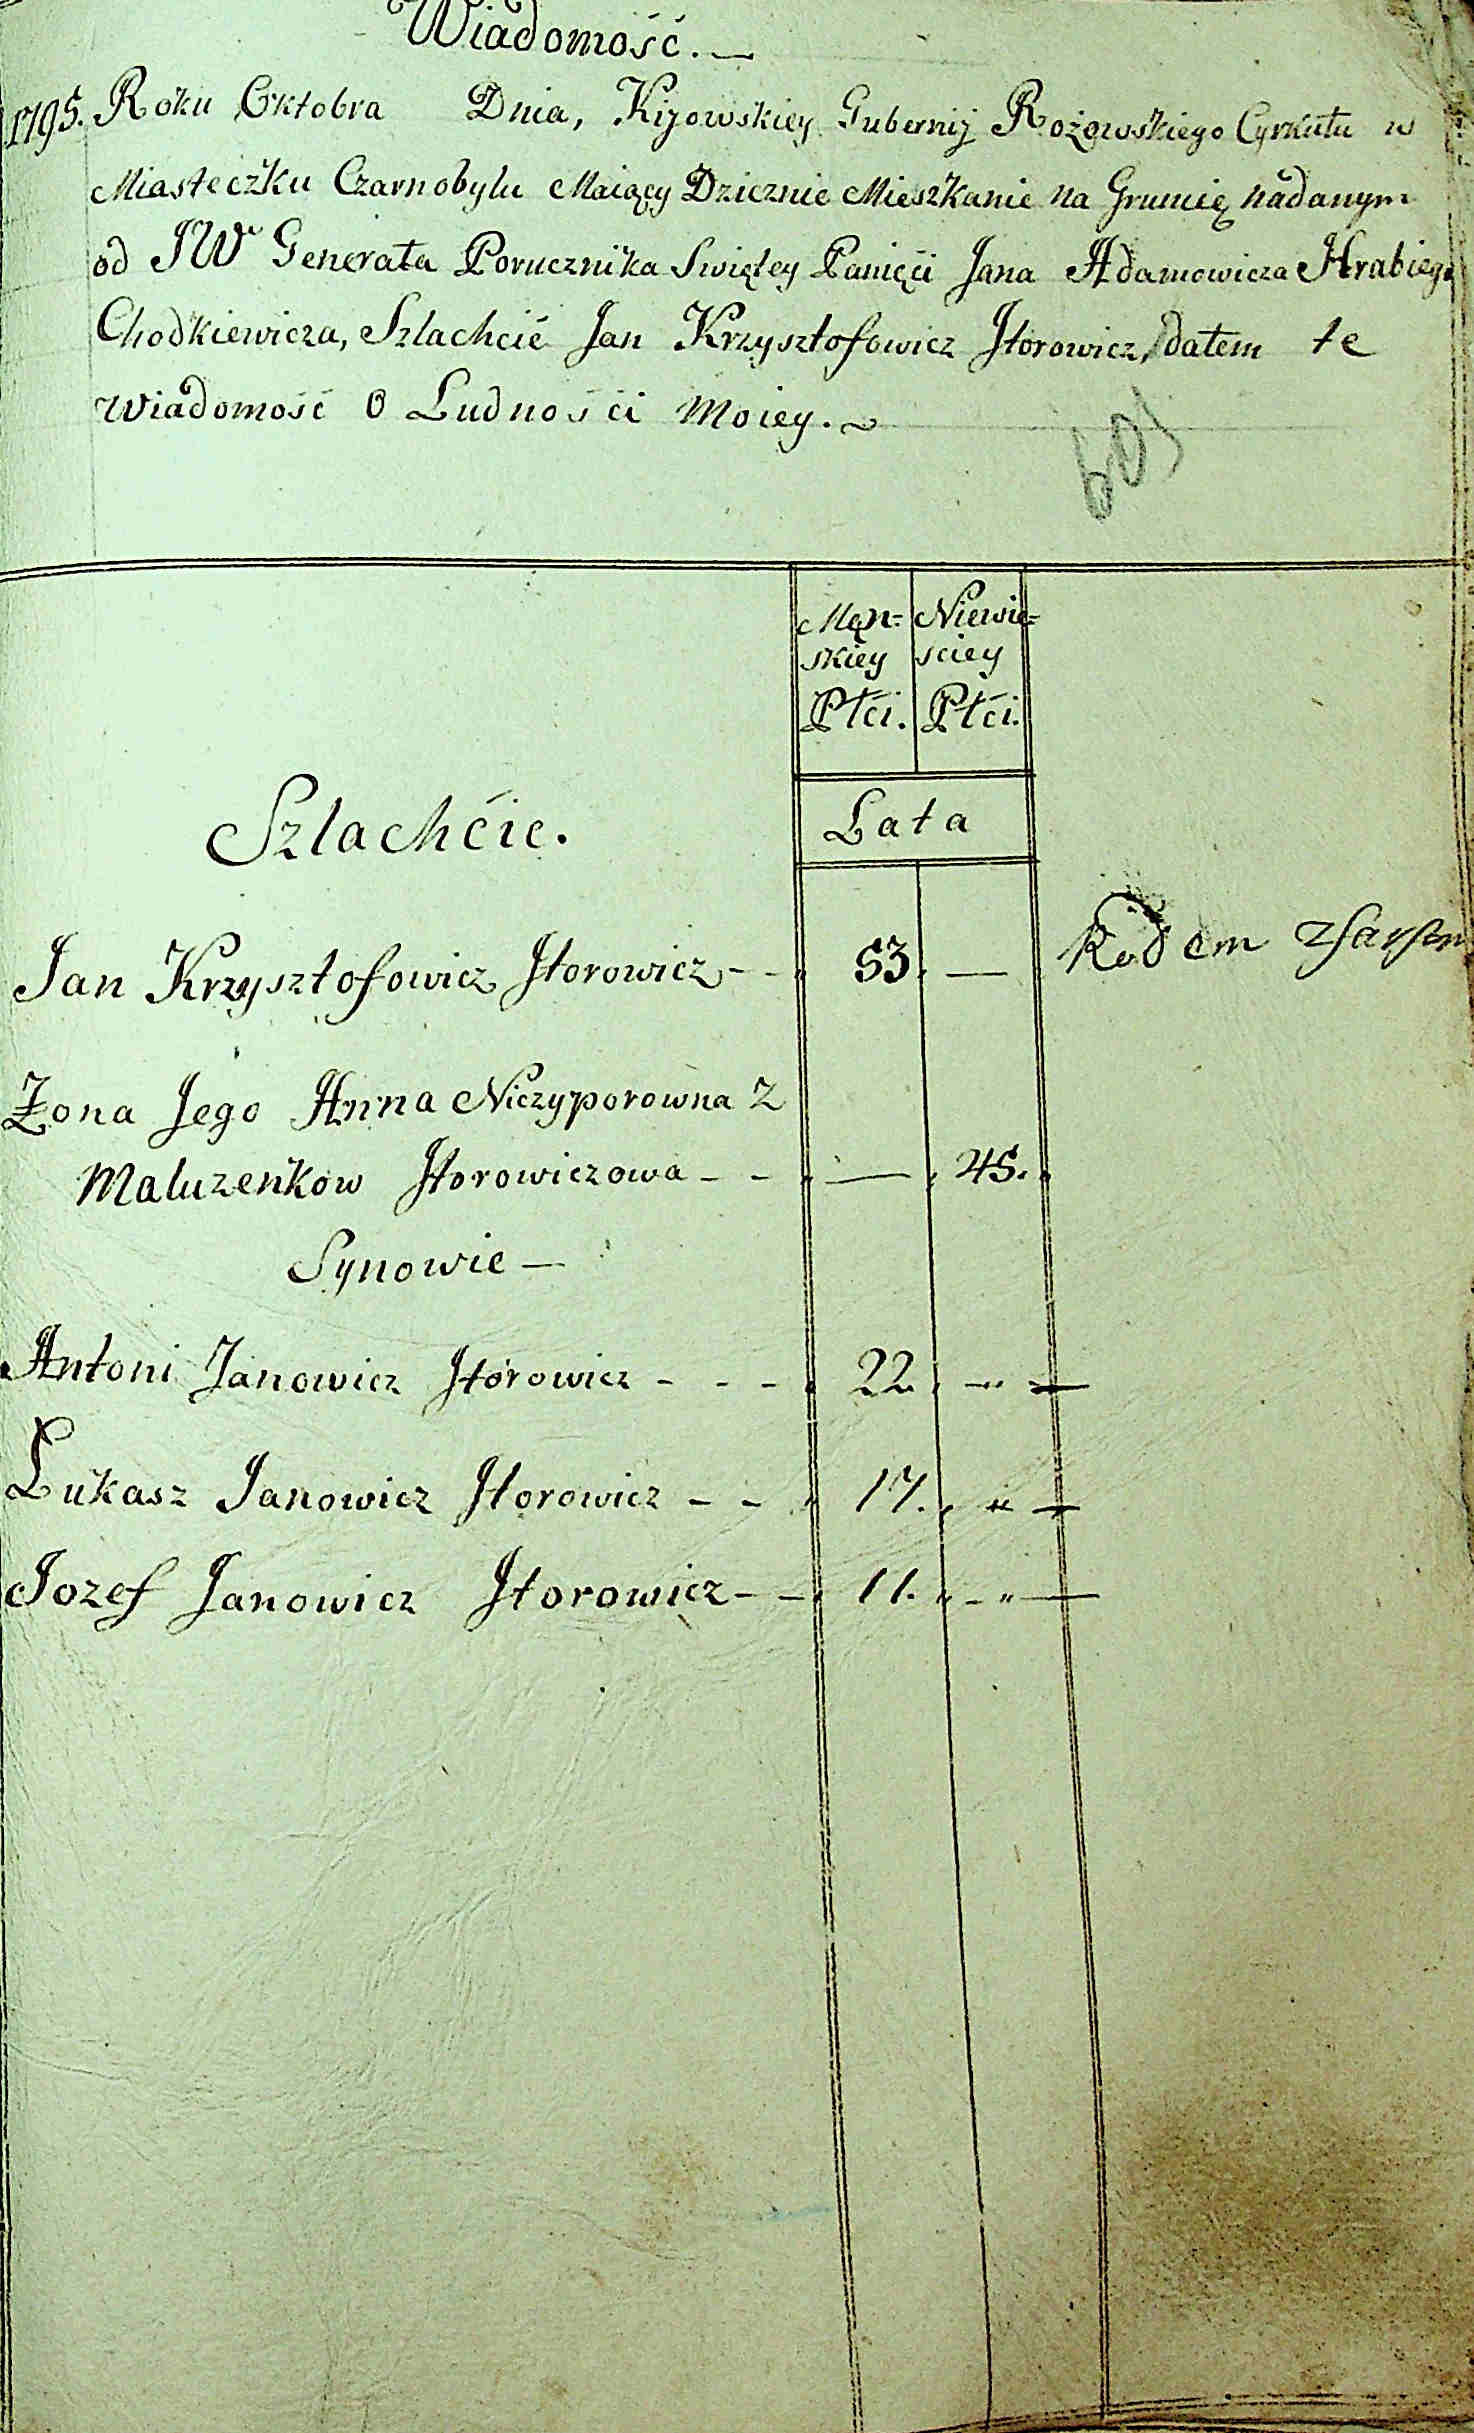 Wiadomość. —
1795. Roku Oktobra Dnia, Kijowskiey Gubernij Rożowskiego Cyrkułu w
Miasteczku Czarnobylu Maiący Dziecznie Mieszkanie na Grunię nadanym
od JW Generała Porucznika Swiętey Panięći Jana Adamowicza Hrabiego
Chodkiewicza, Szlachcić Jan Krzysztofowicz Jtorowicz, dałem te
wiadomość o Ludności Moiey.
601
Męn= Niewie=
skiey sciey
Płći. Płći.
Lata
Szlachćic.
Jan Krzysztofowicz Jtorowicz - - 53. — Rodem
Żona Jego Anna Niczyporowna z
Maluzenkow Jtorowiczowa - - — 45.
Synowie —
Antoni Janowicz Jtorowicz - - - 22. - " —
Łukasz Janowicz Jtorowicz - - 17. " —
Jozef Janowicz Jtorowicz - - 11. - " —